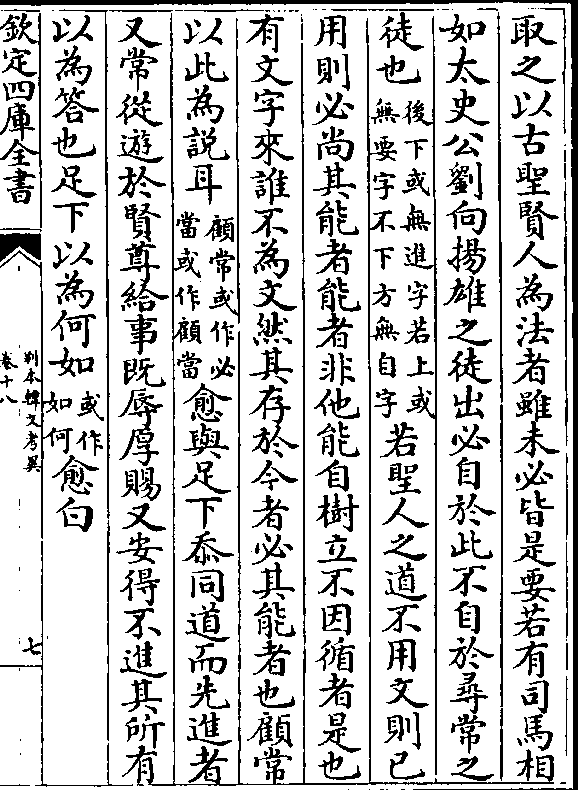 取之以古聖賢人為法者雖未必皆是要若有司馬相
如太史公劉向揚雄之徒出必自於此不自於尋常之
徒也後下或無進字若上或無要字不下方無自字若聖人之道不用文則已
用則必尚其能者能者非他能自樹立不因循者是也
有文字來誰不為文然其存於今者必其能者也顧常
以此為説耳顧常或作必當或作顧當愈與足下忝同道而先進者
又常從遊於賢尊給事既辱厚賜又安得不進其所有
以為答也足下以為何如或作如何愈白
欽定四庫全書
别本韓文考異
卷十八
七